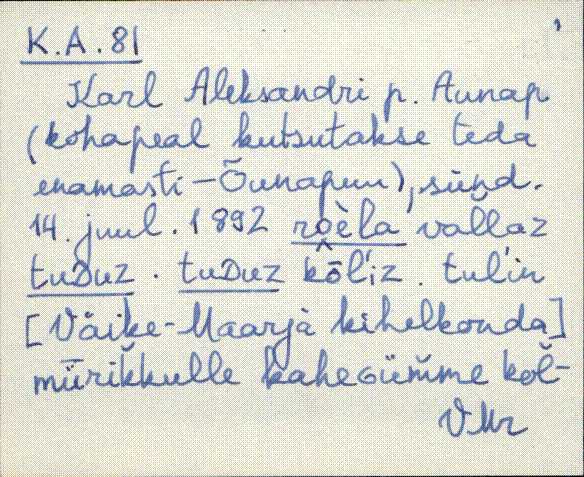 K.A.81
Karl Aleksandri p. Aunap
(kohapeal kutsutakse teda
enamasti – Õunapuu), sünd.
14. juul. 1892 roèla vallaz
tuDuz. tuDuz kōl'iz. tul'in
[Väike-Maarja kihelkonda]
mürikkulle kaheGümme kol-
VMr